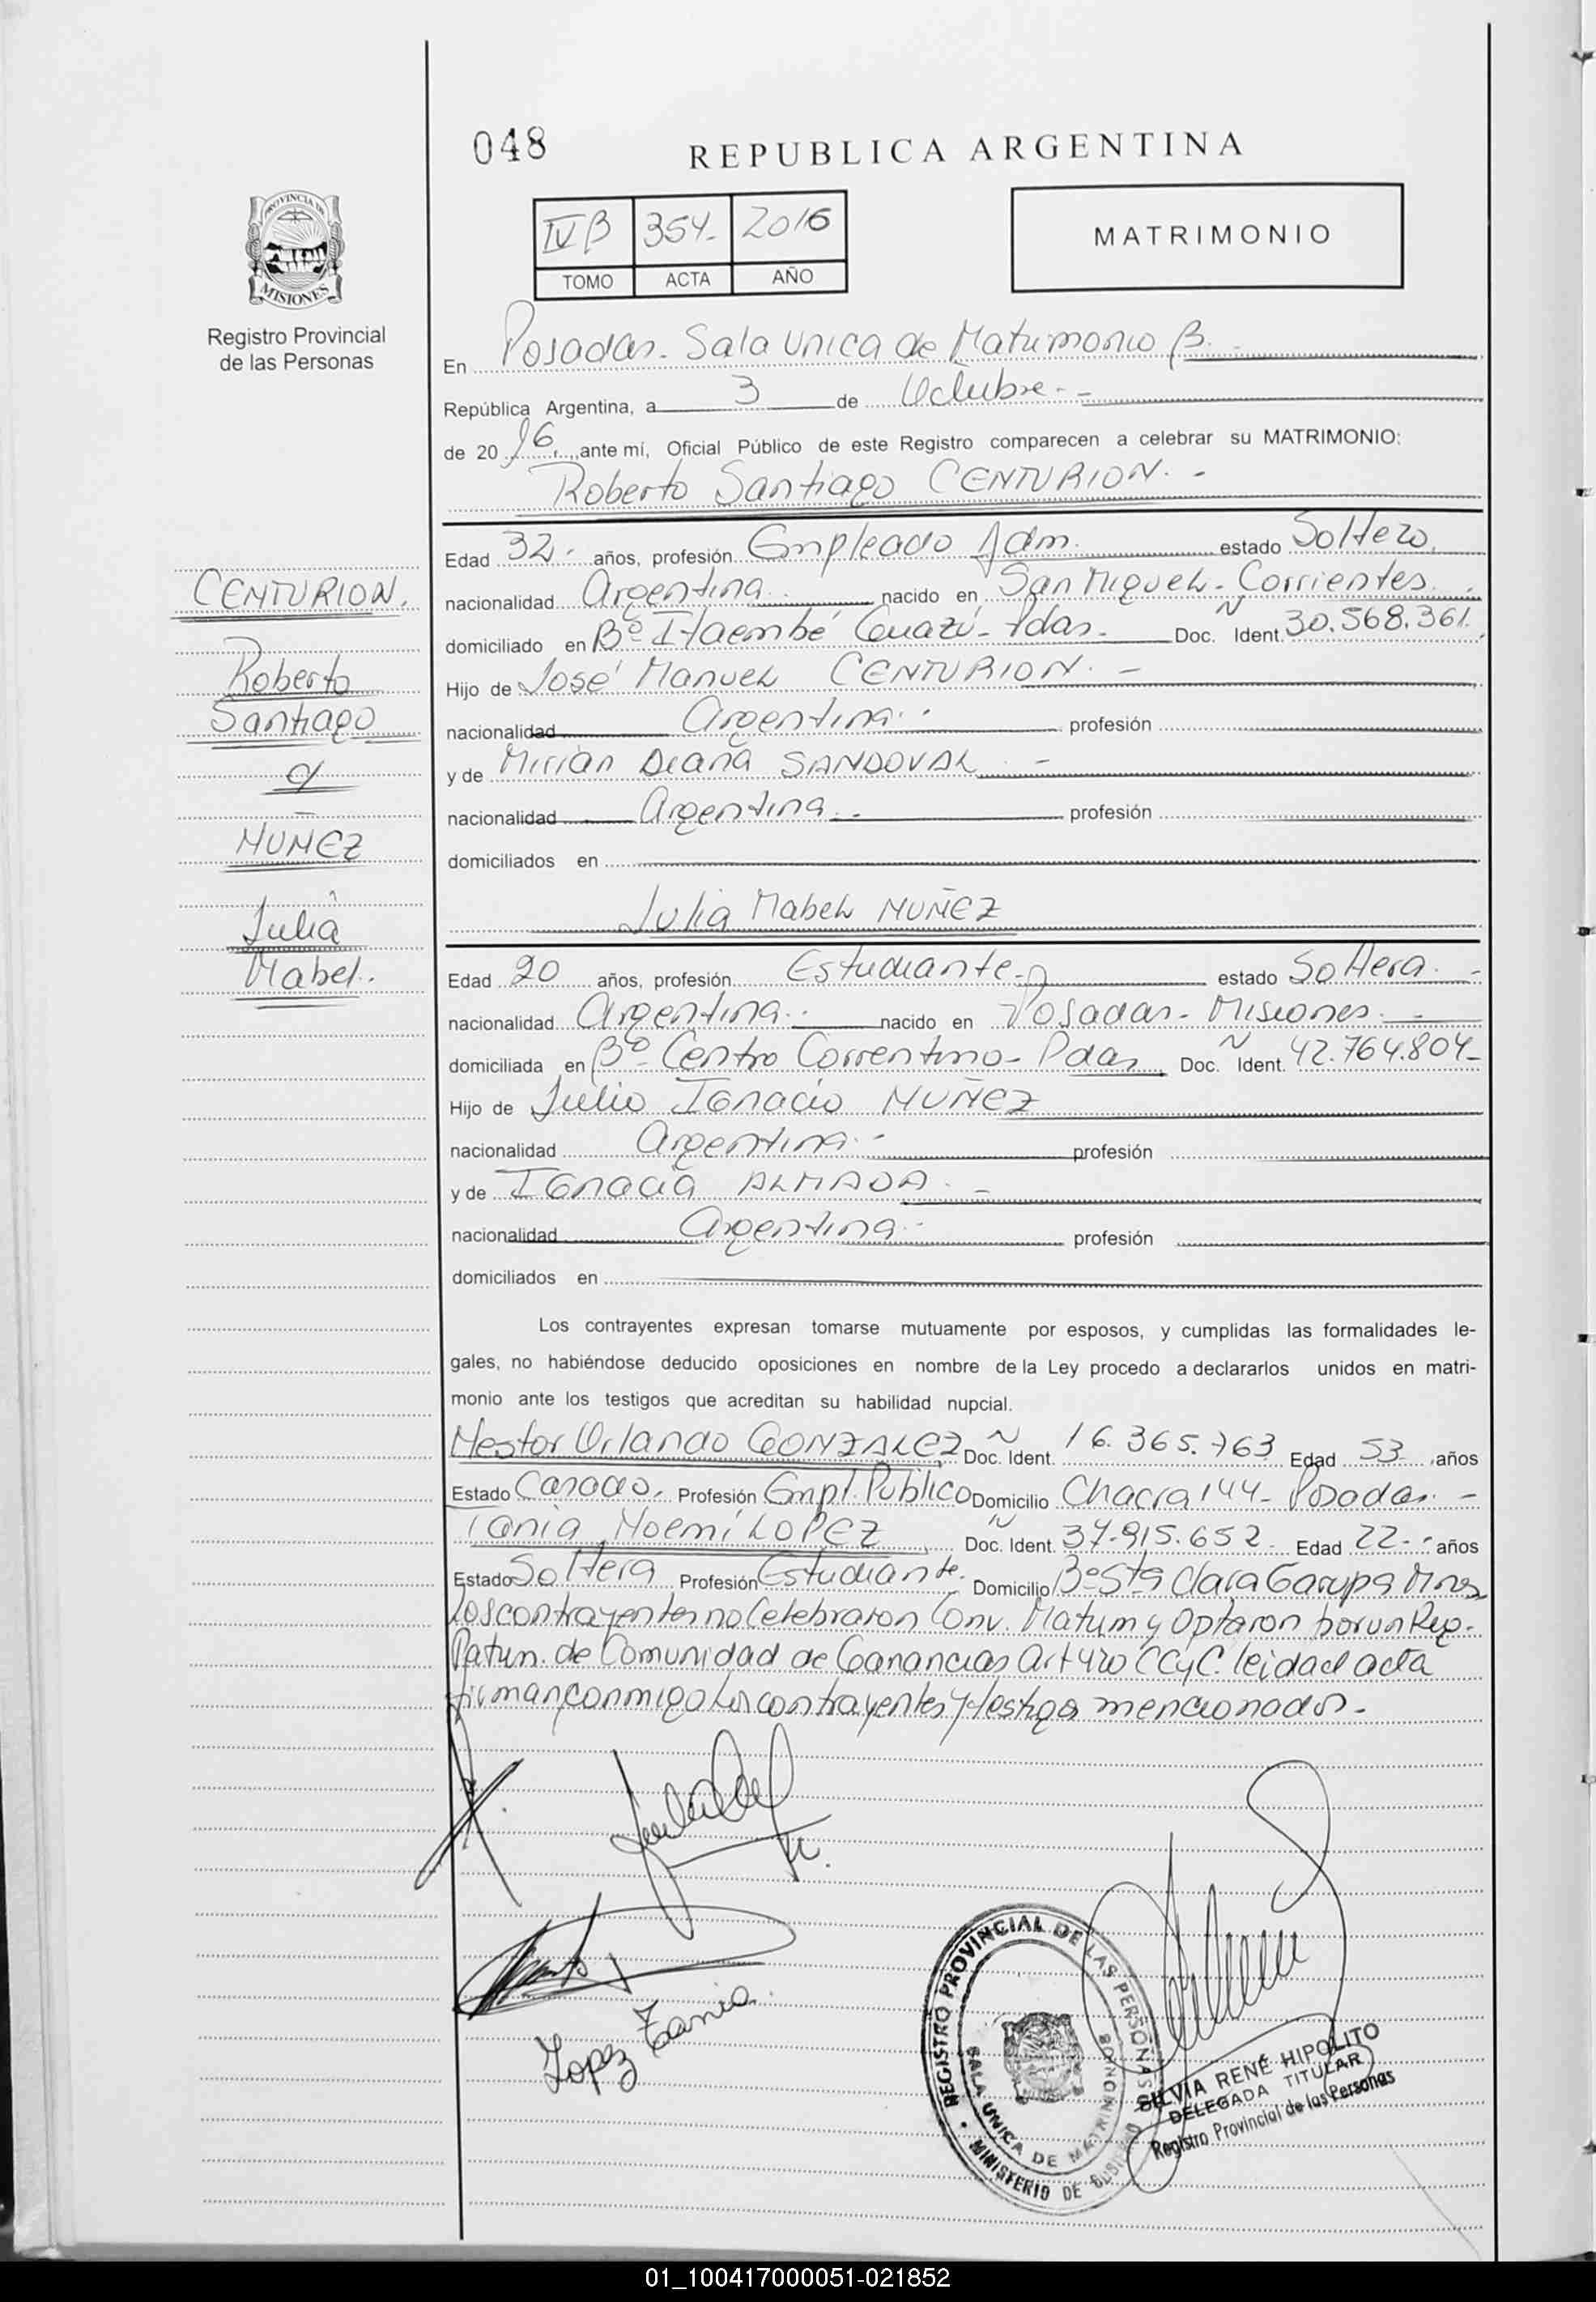 048
REPUBLICA ARGENTINA
IV B 354- 2016
TOMO ACTA AÑO
MATRIMONIO
PROVINCIA DE
MISIONES
Registro Provincial
de las Personas
En Posadas.- Sala Unica de Matrimonio B.-
República Argentina, a 3 de Octubre.-
de 2016, ante mí, Oficial Público de este Registro comparecen a celebrar su MATRIMONIO:
Roberto Santiago CENTURION.-
Edad 32.- años, profesión Empleado Adm. estado Soltero.
nacionalidad Argentina.- nacido en San Miguel- Corrientes.-
domiciliado en Bº Itaembé Guazú- Pdas.- Doc. Ident. 30.568.361.
Hijo de José Manuel CENTURION.-
nacionalidad Argentina.- profesión
y de Mirian Diana SANDOVAL.-
nacionalidad Argentina.- profesión
domiciliados en
CENTURION,
Roberto
Santiago
c/
MUÑEZ
Julia
Mabel.
Julia Mabel MUÑEZ
Edad 20 años, profesión Estudiante.- estado Soltera.-
nacionalidad Argentina.- nacido en Posadas- Misiones.-
domiciliada en Bº Centro Correntino- Pdas Doc. Ident. 42.764.804-
Hijo de Julio Ignacio MUÑEZ
nacionalidad Argentina.- profesión
y de Ignacia ALMADA.-
nacionalidad Argentina.- profesión
domiciliados en
Los contrayentes expresan tomarse mutuamente por esposos, y cumplidas las formalidades le-
gales, no habiéndose deducido oposiciones en nombre de la Ley procedo a declararlos unidos en matri-
monio ante los testigos que acreditan su habilidad nupcial.
Nestor Orlando GONZALEZ Doc. Ident. 16.365.763 Edad 53 años
Estado Casado. Profesión Empl. Publico Domicilio Chacra 144- Posadas.-
Tania Noemí LOPEZ Doc. Ident. 37.915.652- Edad 22.- años
Estado Soltera Profesión Estudiante. Domicilio Bº Sta Clara Garupa Mnes
Los contrayentes no Celebraron Conv. Matrim y Optaron por un Reg.
Patrim. de Comunidad de Ganancias Art 420 CCyC. leida el acta
firman conmigo los contrayentes y testigos mencionados.-
Lopez Tania
REGISTRO PROVINCIAL DE LAS PERSONAS
SALA UNICA DE MATRIMONIO
MINISTERIO DE GOBIERNO
SILVIA RENÉ HIPOLITO
DELEGADA TITULAR
Registro Provincial de las Personas
01_100417000051-021852